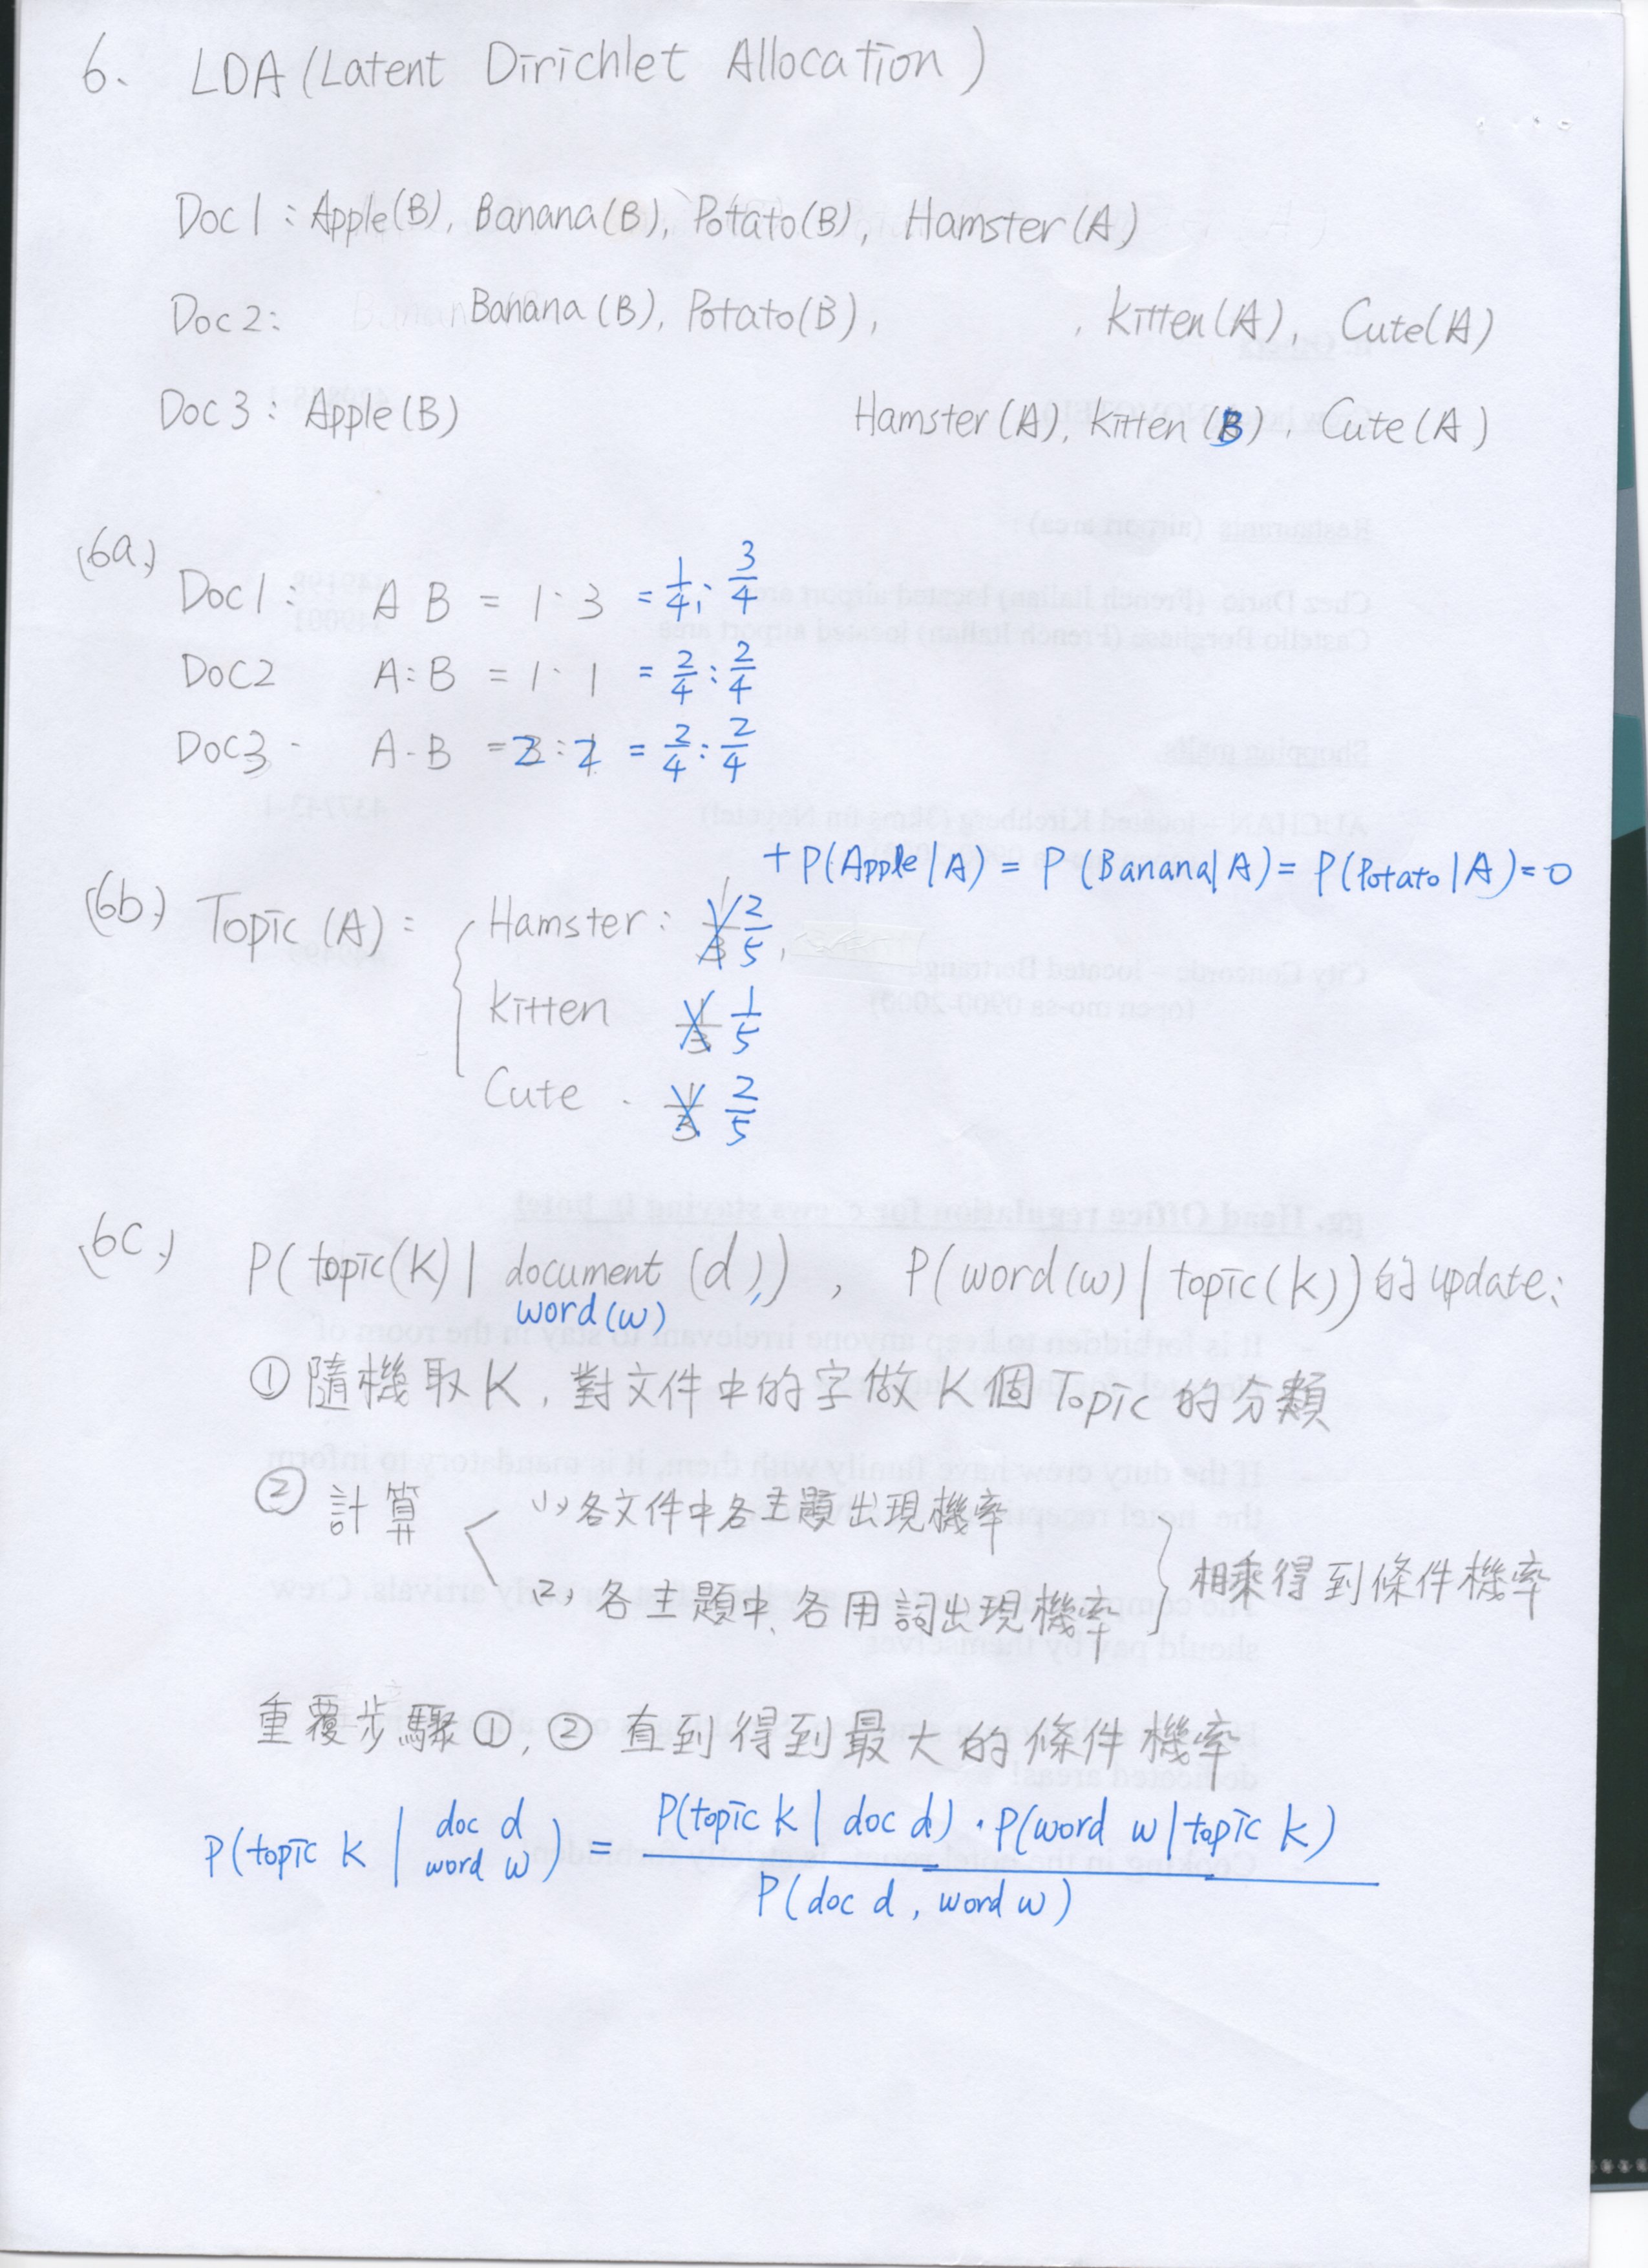 6. LDA (Latent Dirichlet Allocation)
Doc1: Apple(B), Banana(B), Potato(B), Hamster(A)
Doc2: Banana(B), Potato(B), , Kitten(A), Cute(A)
Doc3: Apple(B) Hamster(A), Kitten(B), Cute(A)
(6a.)
Doc1: A B = 1:3 = 1/4 : 3/4
Doc2 A:B = 1:1 = 2/4 : 2/4
Doc3: A:B = 2:2 = 2/4 : 2/4
+P(Apple|A) = P(Banana|A) = P(Potato|A) = 0
(6b.) Topic(A): { Hamster: 1/3 2/5,
Kitten 1/3 1/5
Cute 1/3 2/5
(6c.) P(topic(K) | document(d,)), P(word(w) | topic(k)) 的 update:
word(w)
① 隨機取K, 對文件中的字做K個Topic的分類
② 計算 (1) 各文件中各主題出現機率
(2) 各主題中各用詞出現機率 } 相乘得到條件機率
重覆步驟①, ② 直到得到最大的條件機率
P(topic k | doc d word w) = P(topic k | doc d) · P(word w | topic k) / P(doc d, word w)